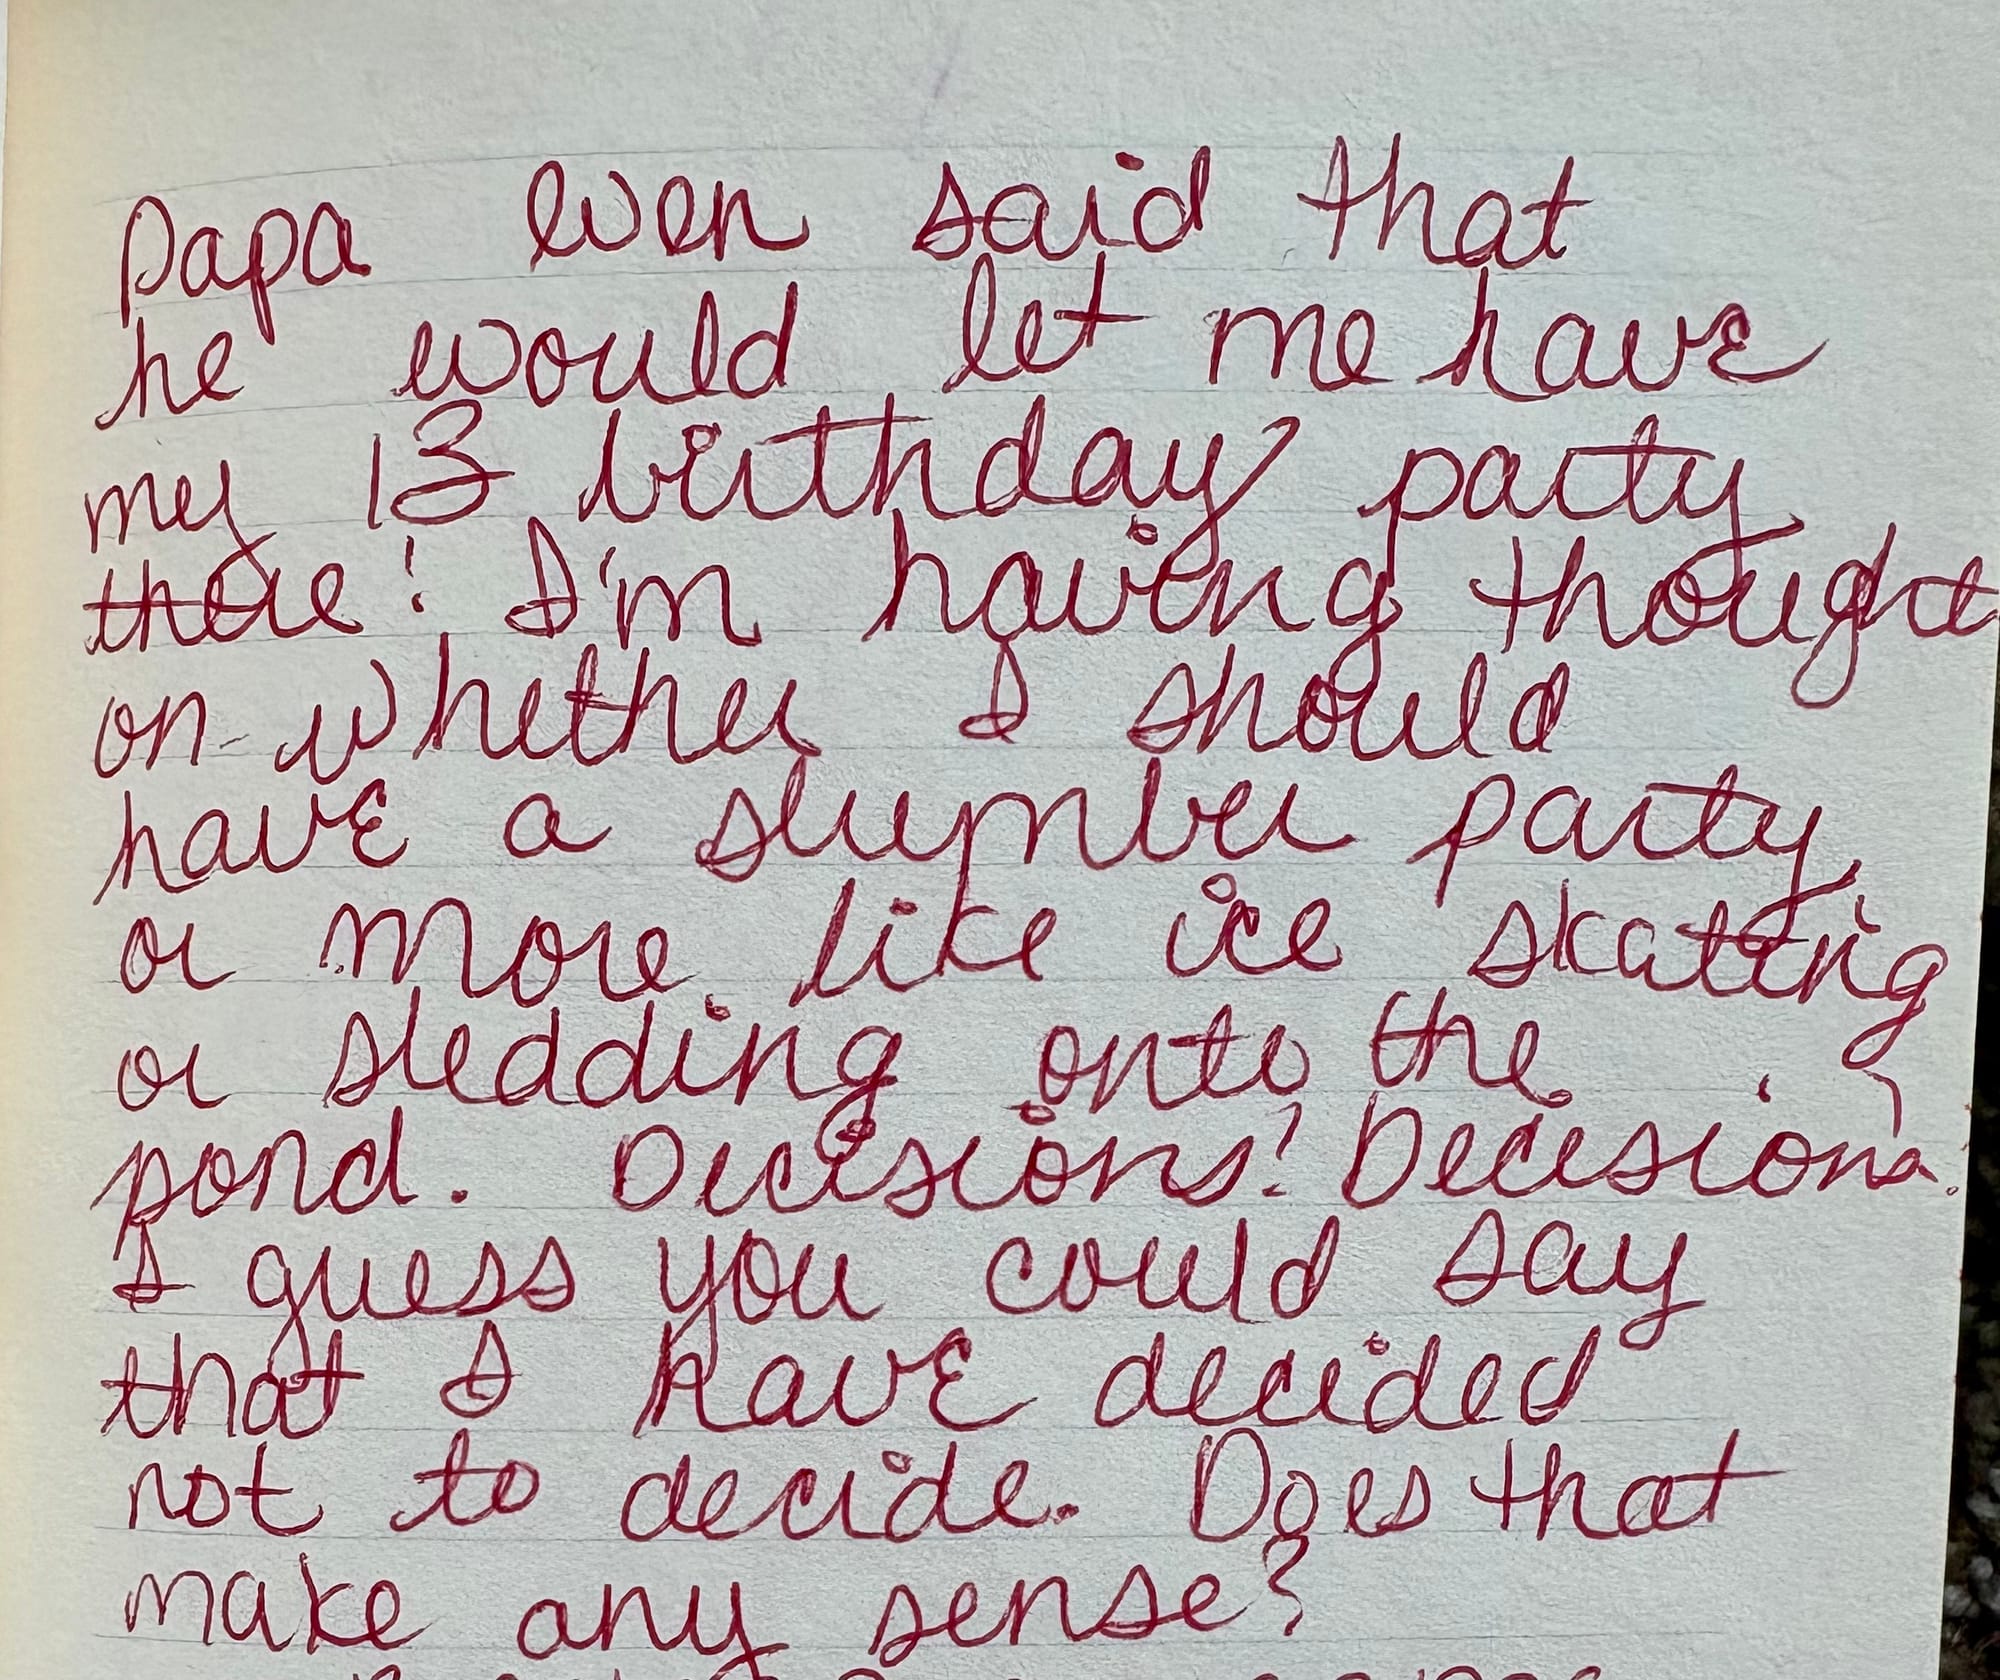 Papa even said that
he would let me have
my 13 birthday party
there! I'm having thought
on whether I should
have a slumber party
or more like ice skating
or sledding onto the
pond. Decisions! Decisions.
I guess you could say
that I have decided
not to decide. Does that
make any sense?